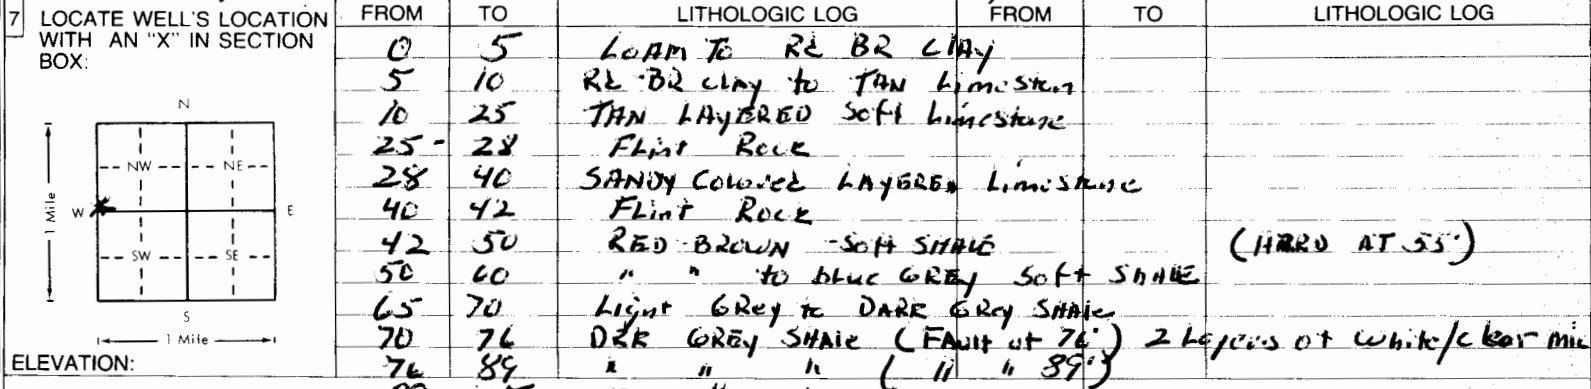 7 LOCATE WELL'S LOCATION WITH AN "X" IN SECTION BOX:
FROM TO LITHOLOGIC LOG FROM TO LITHOLOGIC LOG
0 5 LOAM To Rd BR Clay
5 10 Rd BR clay to TAN Limeston
10 25 TAN LAYERED Soft Limestone
25 - 28 Flint Rock
28 40 SANDY Colored LAYERED Limestone
40 42 Flint Rock
42 50 RED BROWN Soft SHALE (HARD AT 55')
50 60 " " to blue GREY Soft SHALE
65 70 Light Grey to DARK Grey SHALE
70 76 DRK GREY SHALE (FAult at 76') 2 Layers of white/clear mic
76 89 " " " ( " " 89')
N
NW NE
W X E
SW SE
S
1 Mile
1 Mile
ELEVATION: